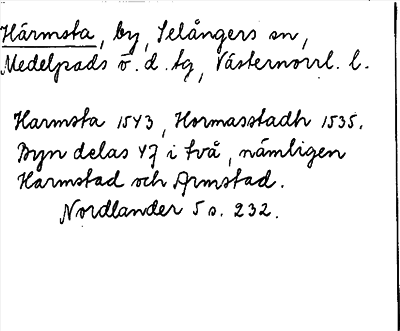 Härmsta, by, Selångers sn,
Medelpads ö. d. tg, Västernorrl. l.
Harmsta 1543, Hormasstadh 1535.
Byn delas 47 i två, nämligen
Harmstad och Armstad.
Nordlander 5 s. 232.